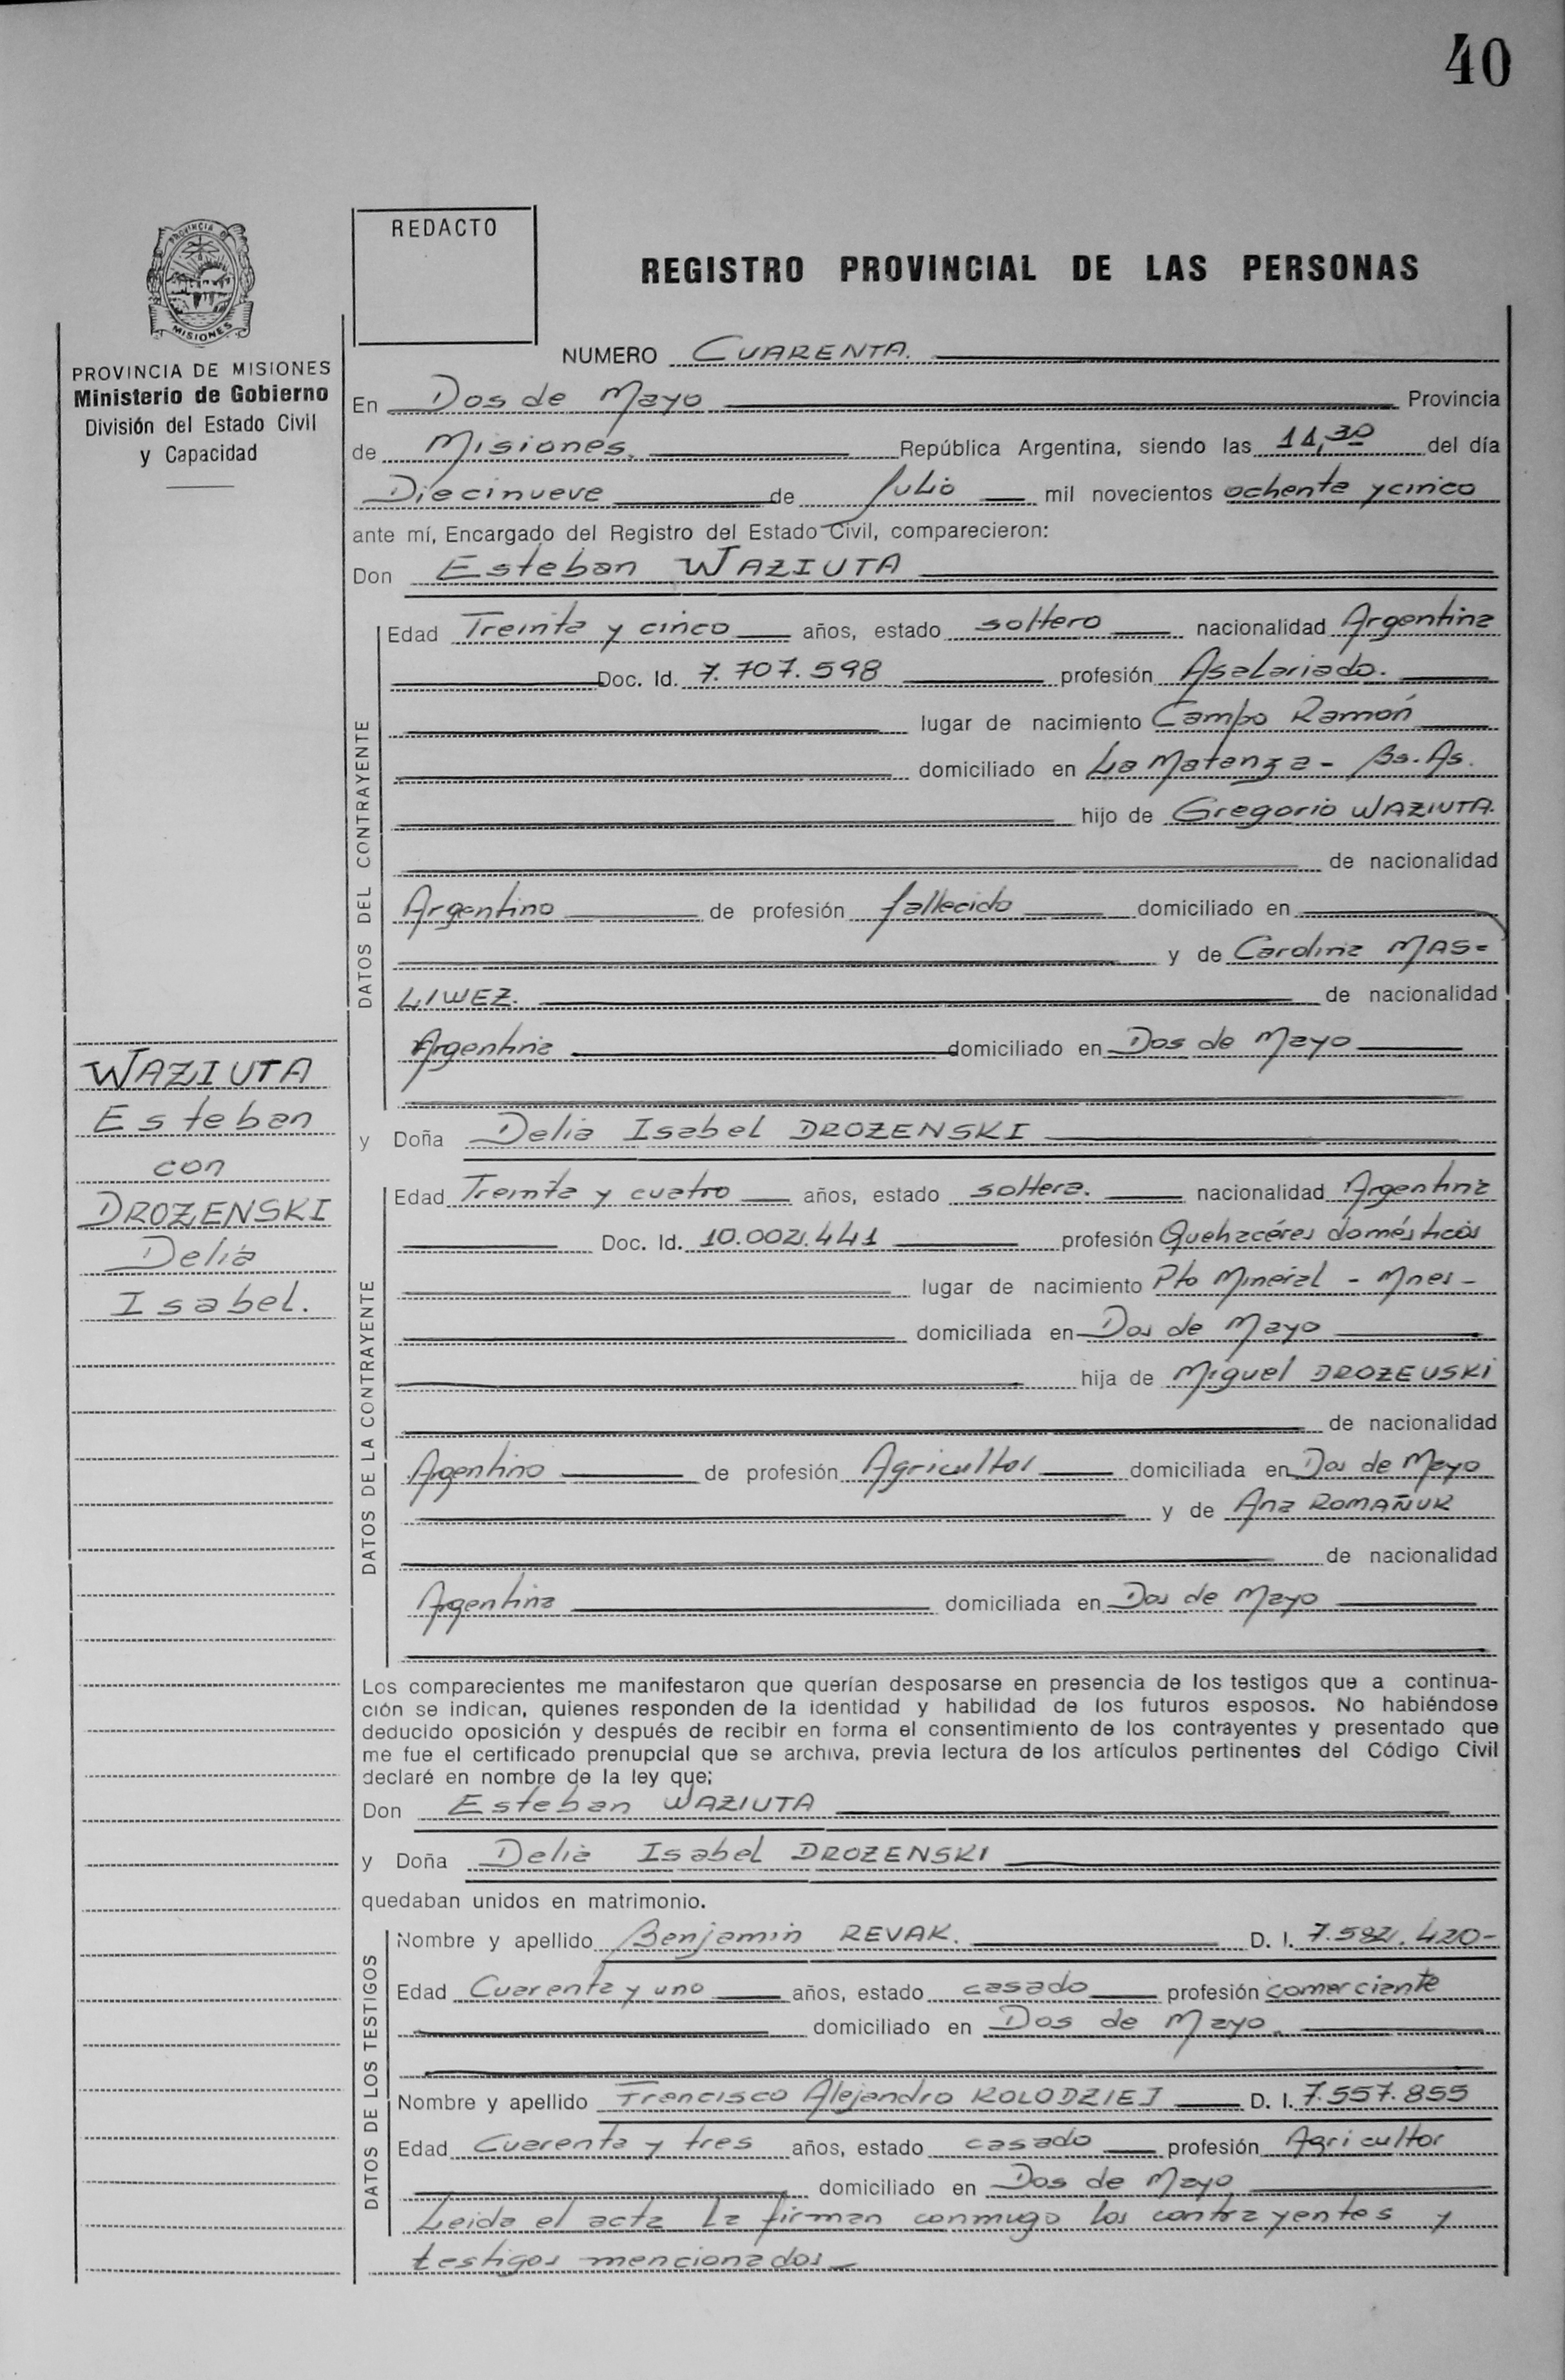 40
PROVINCIA DE
MISIONES
PROVINCIA DE MISIONES
Ministerio de Gobierno
División del Estado Civil
y Capacidad
WAZIUTA
Esteban
con
DROZENSKI
Delia
Isabel.
REDACTO
REGISTRO PROVINCIAL DE LAS PERSONAS
NUMERO CUARENTA.
En Dos de Mayo Provincia
de Misiones. República Argentina, siendo las 11,30 del día
Diecinueve de Julio mil novecientos ochenta y cinco
ante mí, Encargado del Registro del Estado Civil, comparecieron:
Don Esteban WAZIUTA
DATOS DEL CONTRAYENTE
Edad Treinta y cinco años, estado soltero nacionalidad Argentina
Doc. Id. 7.707.598 profesión Asalariado.
lugar de nacimiento Campo Ramón
domiciliado en La Matanza - Bs. As.
hijo de Gregorio WAZIUTA.
de nacionalidad
Argentino de profesión fallecido domiciliado en
y de Carolina MAS=
LIWEZ. de nacionalidad
Argentina domiciliado en Dos de Mayo
y Doña Delia Isabel DROZENSKI
DATOS DE LA CONTRAYENTE
Edad Treinta y cuatro años, estado soltera. nacionalidad Argentina
Doc. Id. 10.002.441 profesión Quehacéres domésticos
lugar de nacimiento Pto Mineral - Mnes -
domiciliada en Dos de Mayo
hija de Miguel DROZEUSKI
de nacionalidad
Argentino de profesión Agricultor domiciliada en Dos de Mayo
y de Ana ROMAÑUK
de nacionalidad
Argentina domiciliada en Dos de Mayo
Los comparecientes me manifestaron que querían desposarse en presencia de los testigos que a continua-
ción se indican, quienes responden de la identidad y habilidad de los futuros esposos. No habiéndose
deducido oposición y después de recibir en forma el consentimiento de los contrayentes y presentado que
me fue el certificado prenupcial que se archiva, previa lectura de los artículos pertinentes del Código Civil
declaré en nombre de la ley que;
Don Esteban WAZIUTA
y Doña Delia Isabel DROZENSKI
quedaban unidos en matrimonio.
DATOS DE LOS TESTIGOS
Nombre y apellido Benjamin REVAK. D. I. 7.582.420-
Edad Cuarenta y uno años, estado casado profesión comerciante
domiciliado en Dos de Mayo.
Nombre y apellido Francisco Alejandro KOLODZIEJ D. I. 7.557.855
Edad Cuarenta y tres años, estado casado profesión Agricultor
domiciliado en Dos de Mayo
Leida el acta la firman conmigo los contrayentes y
testigos mencionados